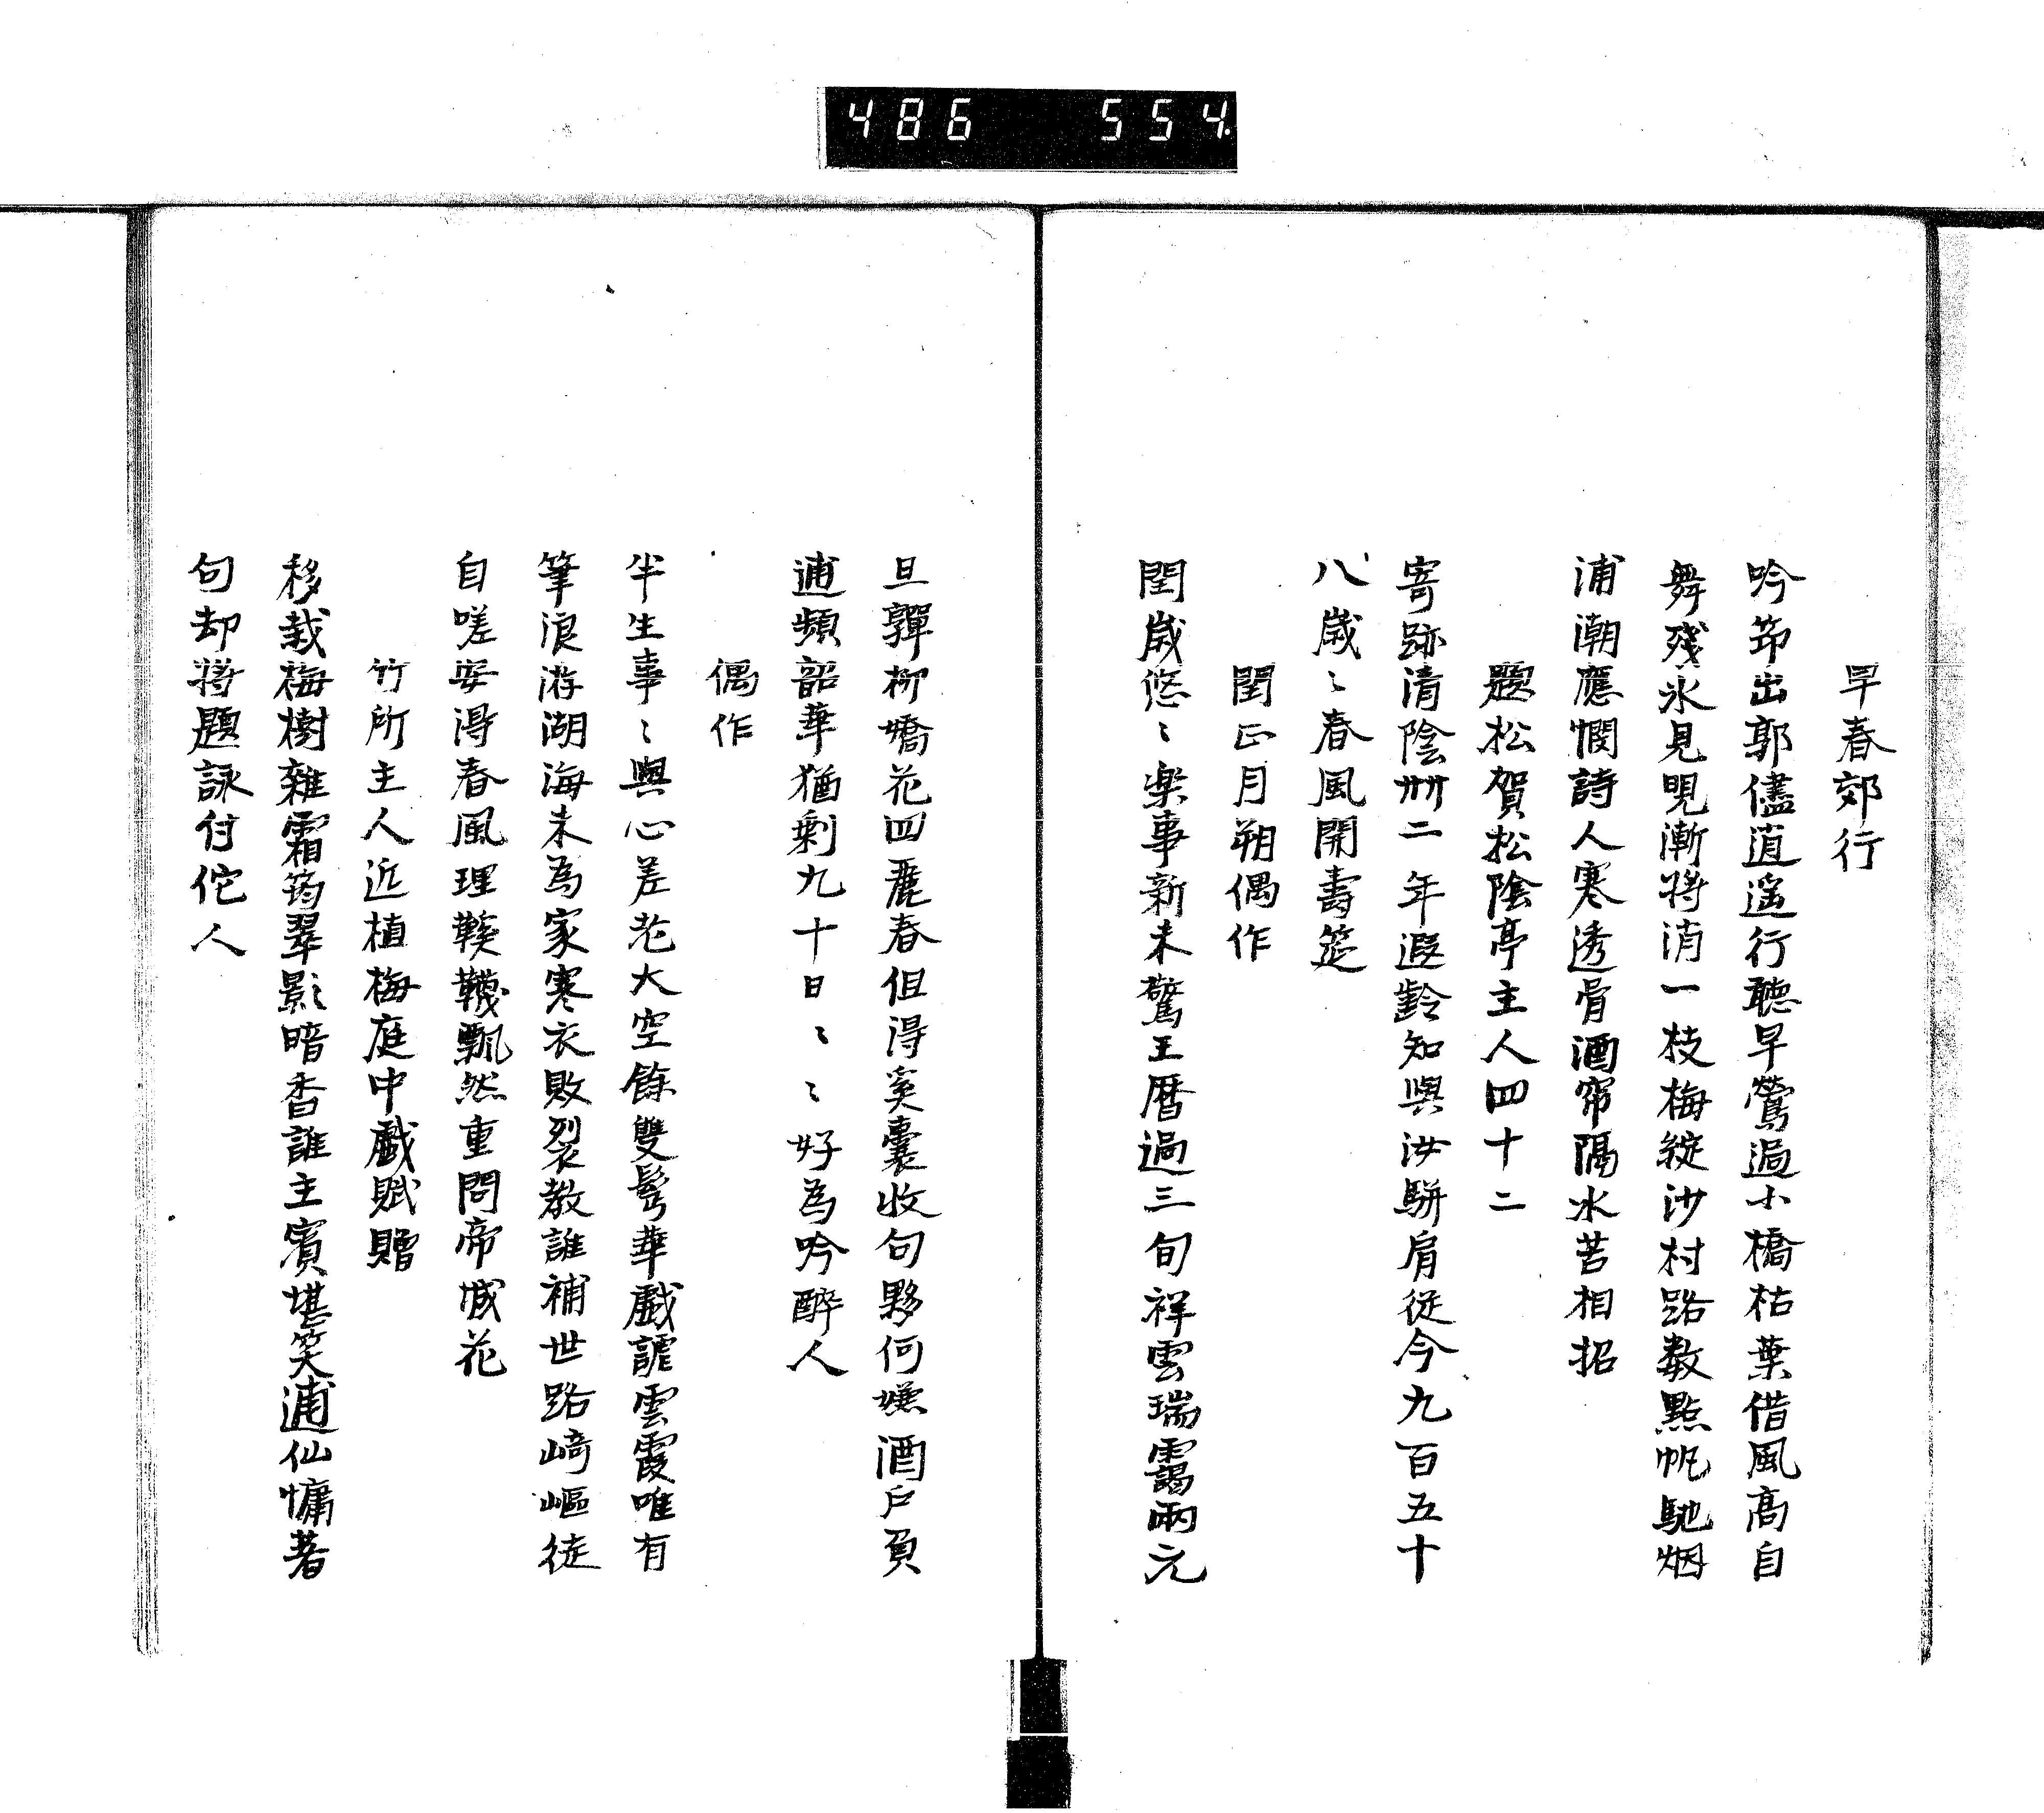 486 554
早春郊行
吟筇出郭儘逍遥行聽早鶯過小橋枯葉借風高自
舞殘氷見晛漸将消一枝梅綻沙村路数點帆馳烟
浦潮應憫詩人寒透骨酒帘隔水苦相招
題松賀松陰亭主人四十二
寄跡清陰卌二年遐齡知與汝駢肩従今九百五十
八歳〻春風開壽筵
閏正月朔偶作
閏歳悠〻楽事新未驚王暦過三旬祥雲瑞靄兩元
旦嚲柳嬌花四麗春但得奚嚢收句夥何嫌酒戸負
逋頻韶華猶剰九十日〻〻好為吟醉人
偶作
半生事〻與心差老大空餘雙鬂華戲謔雲霞唯有
筆浪游湖海未為家寒衣敗裂教誰補世路崎嶇徒
自嗟安得春風理鞵韈飄然重問帝城花
竹所主人近植梅庭中戯賦贈
移栽梅樹雜霜筠翠影暗香誰主賓堪笑逋仙慵著
句却将題詠付佗人